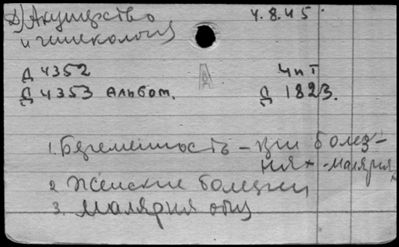 Д) Акушерство 4.8.45.
и гинекология
Д 4352 Чит
Д 4353 Альбом. Д 1823.
1. Беременность – при болез-
ня - малярия
2. Женские болезни
3. Малярия